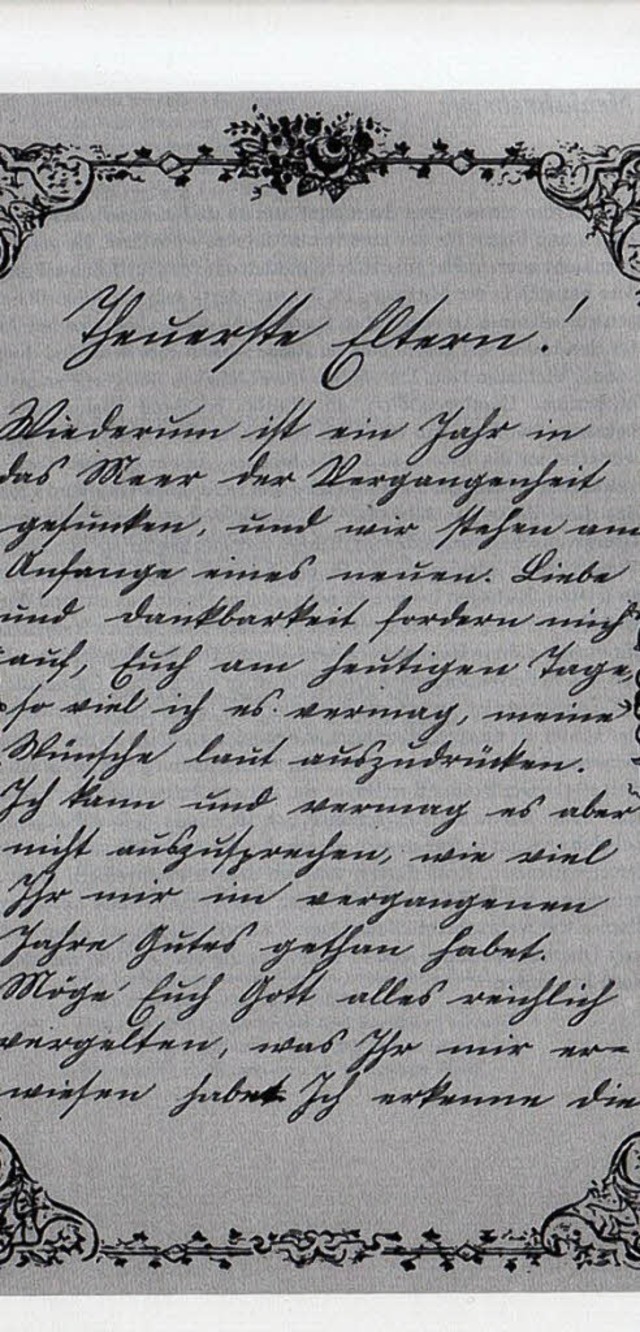 Theuerste Eltern!
Wiederum ist ein Jahr in
das Meer der Vergangenheit
gesunken, und wir stehen am
Anfange eines neuen. Liebe
und dankbarkeit fordern mich
auf, Euch am heutigen Tage,
so viel ich es vermag, meine
Wünsche laut auszudrücken.
Ich kann und vermag es aber
nicht auszusprechen, wie viel
Ihr mir im vergangenen
Jahre Gutes gethan habet.
Möge Euch Gott alles reichlich
vergelten, was Ihr mir er=
wiesen habet Ich erkenne die